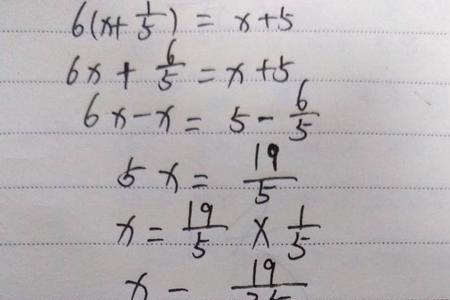 6(x+ 1/5) = x+5
6x + 6/5 = x+5
6x-x = 5 - 6/5
5x = 19/5
x = 19/5 × 1/5
x = 19/25